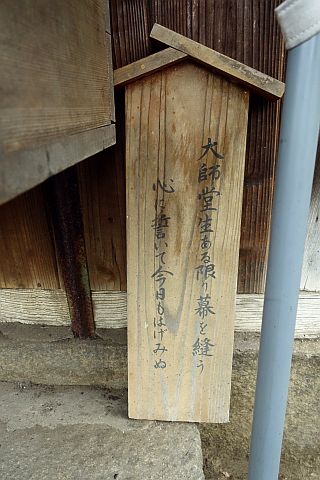 大師堂生ある限り幕を縫う
心に誓いて今日もはげみぬ